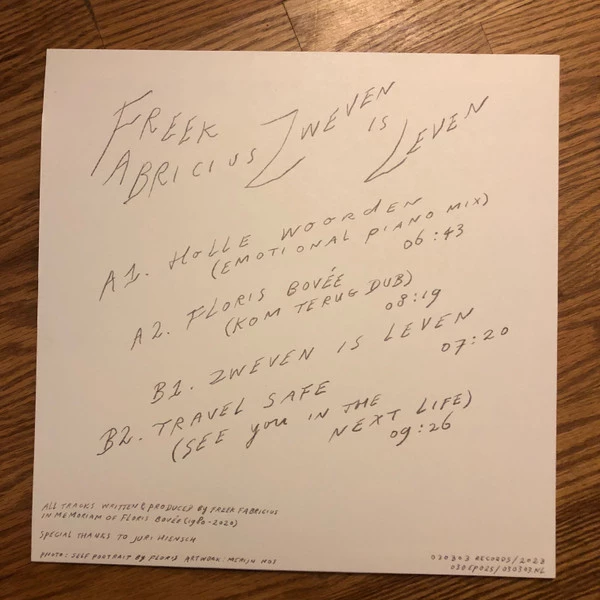 FREEK
FABRICIUS
ZWEVEN
IS
LEVEN
A1. HOLLE WOORDEN
(EMOTIONAL PIANO MIX)
06:43
A2. FLORIS BOVÉE
(KOM TERUG DUB)
08:19
B1. ZWEVEN IS LEVEN
07:20
B2. TRAVEL SAFE
(SEE you IN THE
NEXT LIFE)
09:26
ALL TRACKS WRITTEN & PRODUCED By FREEK FABRICIUS
IN MEMORIAM OF FLORIS BOVÉE (1980-2020)
SPECIAL THANKS TO JURI HIENSCH
PHOTO: SELF PORTRAIT By FLORIS ARTWORK: MERIJN HOS
030303 RECORDS/2020
030EP025/030303.NL